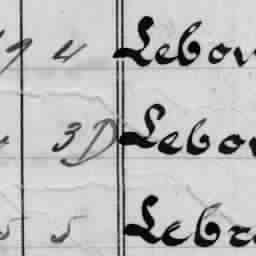 9 4 Lebov
3D Lebov
5 5 Lebr